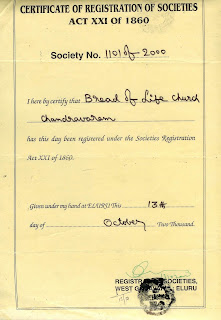 CERTIFICATE OF REGISTRATION OF SOCIETIES
ACT XXI OF 1860
Society No. 1101 of 2000
I here by certify that Bread of Life Church
Chandravaram
has this day been registered under the Societies Registration
Act XXI of 1860.
Given under my hand at ELURU This 13th
day of October Two Thousand.
REGISTRAR OF SOCIETIES,
WEST GODAVARI, ELURU